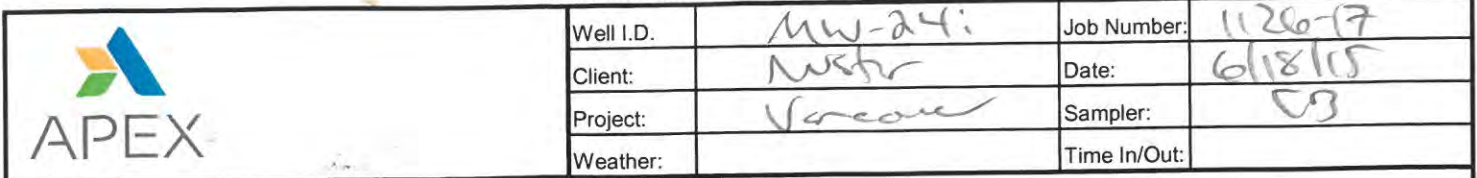 APEX
Well I.D. MW-24i Job Number: 1126-17
Client: Date: 6/18/15
Project: Vancouver Sampler: CB
Weather: Time In/Out: